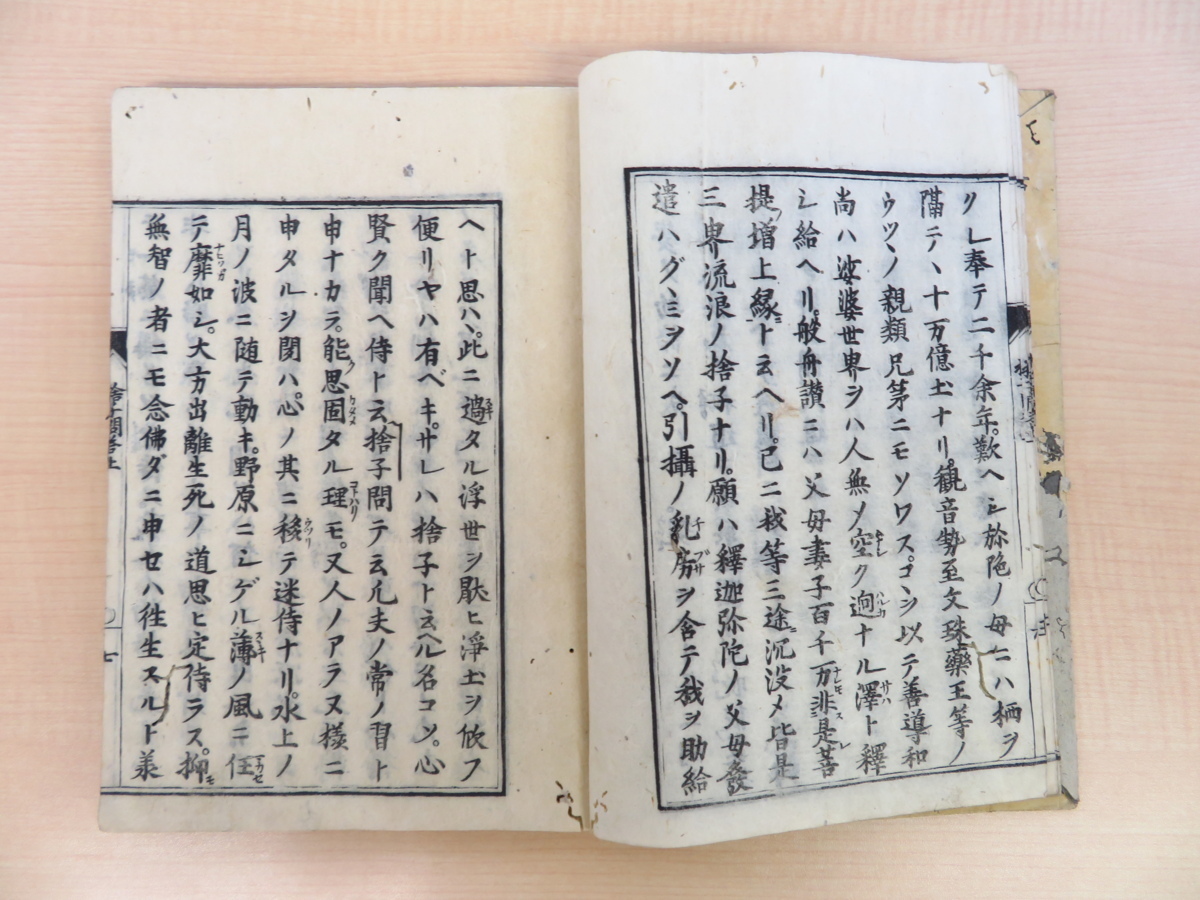 リシ奉テ二千余年。歎ヘシ弥陀ノ母ニハ栖ヲ
隔テヽ十万億土ナリ。観音勢至文珠藥王等ノ
ウツヽノ親類兄弟ニモソワス。コヽヲ以テ善導和
尚ハ娑婆世界ヲハ人無メ空ク逈ナル澤ト釋
シ給ヘリ。般舟讃ニハ父母妻子百千万非是菩
提増上縁ト云ヘリ。已ニ我等三途ニ沉没メ皆是
三界流浪ノ捨子ナリ。願ハ釋迦弥陀ノ父母發
遣ハグヽミヲソヘ。引攝ノ乳房ヲ含テ我ヲ助給
ヘト思ハヽ。此ニ過タル浮世ヲ厭ヒ淨土ヲ欣フ
便リヤハ有ベキ。サレハ捨子ト云ヘル名コソ。心
賢ク聞ヘ侍ト云捨子問テ云凡夫ノ常ノ習ト
申ナカラ。能思固タル理モ。又人ノアラヌ樣ニ
申タルヲ聞ハ。心ノ其ニ移テ迷侍ナリ。水上ノ
月ノ波ニ随テ動キ。野原ニシゲル薄ノ風ニ任
テ靡如シ。大方出離生死ノ道思ヒ定侍ラス。抑
無智ノ者ニモ念佛ダニ申セハ往生スルト義